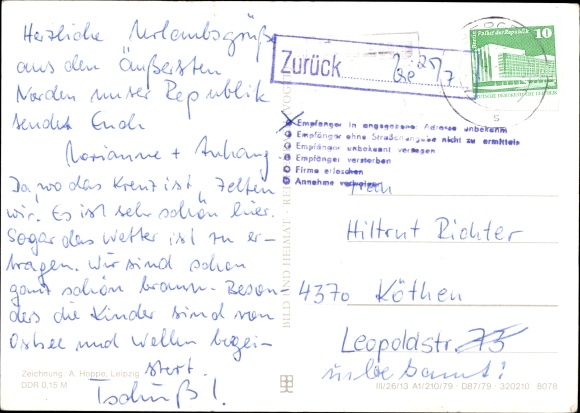 Herzliche Urlaubsgrüße
aus den äußersten
Norden unser Republik
sendet Euch
Marianne + Anhang.
Da, wo das Kreuz ist, zelten
wir. Es ist sehr schön hier.
Sogar das Wetter ist zu er-
tragen. Wir sind schon
ganz schön braun. Beson-
ders die Kinder sind von
Ostsee und Wellen begei-
stert.
Tschüß!
Zeichnung: A. Hoppe, Leipzig
DDR 0,15 M
BILD UND HEIMAT
Zurück
25/7.
Empfänger in angegebener Adresse unbekannt
Empfänger ohne Straßenangabe nicht zu ermitteln
Empfänger unbekannt verzogen
Empfänger verstorben
Firma erloschen
Annahme verweigert
Berlin Palast der Republik
10
DEUTSCHE DEMOKRATISCHE REPUBLIK
S
Hiltrut Richter
4370 Köthen
Leopoldstr. 75
unbekannt!
III/26/13 A1/210/79 · D87/79 · 320210 8078